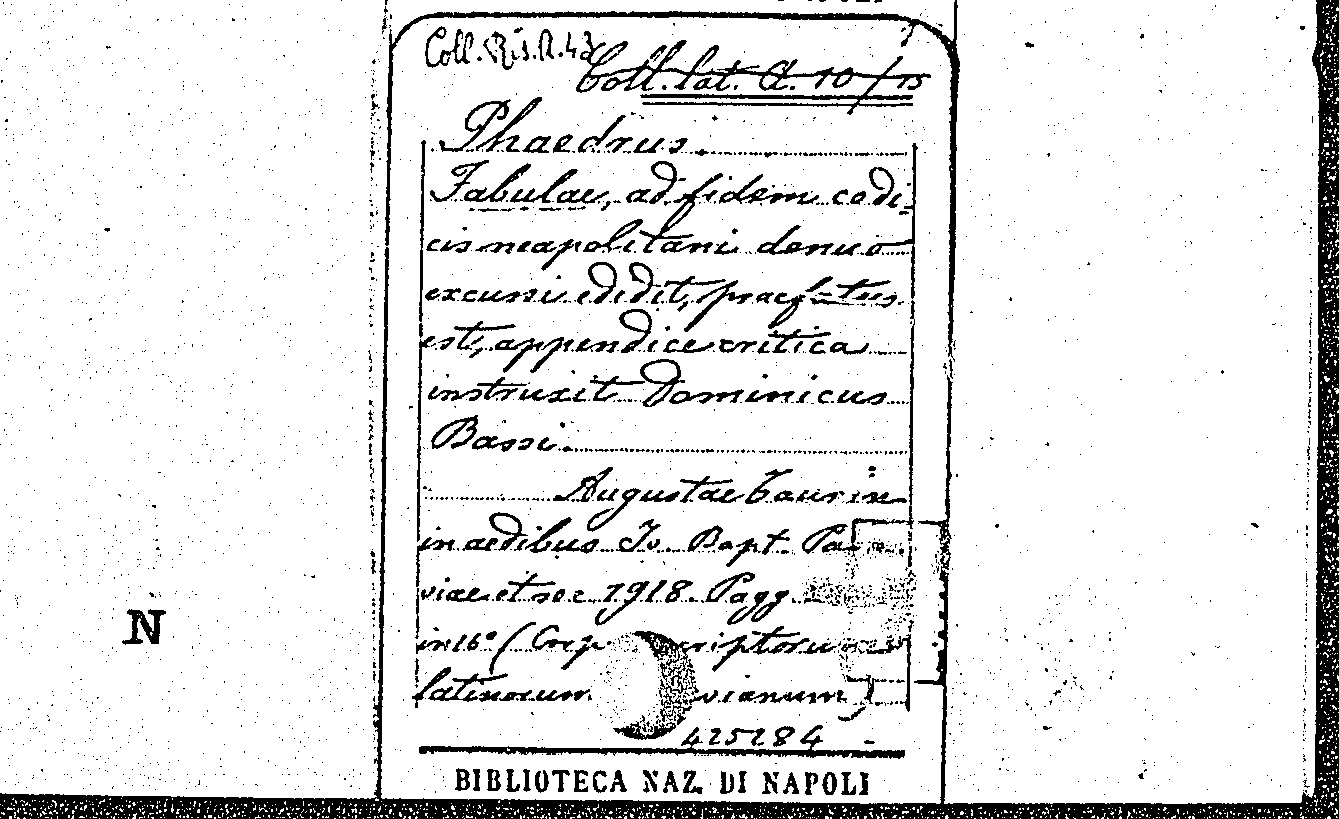 Coll. Ris. A. 43
Coll. lat. A. 10/15
Phaedrus.
Fabulae, ad fidem codi-
cis neapolitani denuo
excussi edidit, praefatus
est, appendice critica
instruxit Dominicus
Bassi.
Augustae Taurin
in aedibus Io. Bapt.
viae et soc 1918. Pagg.
in 16° (
latinorum vianum)
425284
BIBLIOTECA NAZ. DI NAPOLI
N